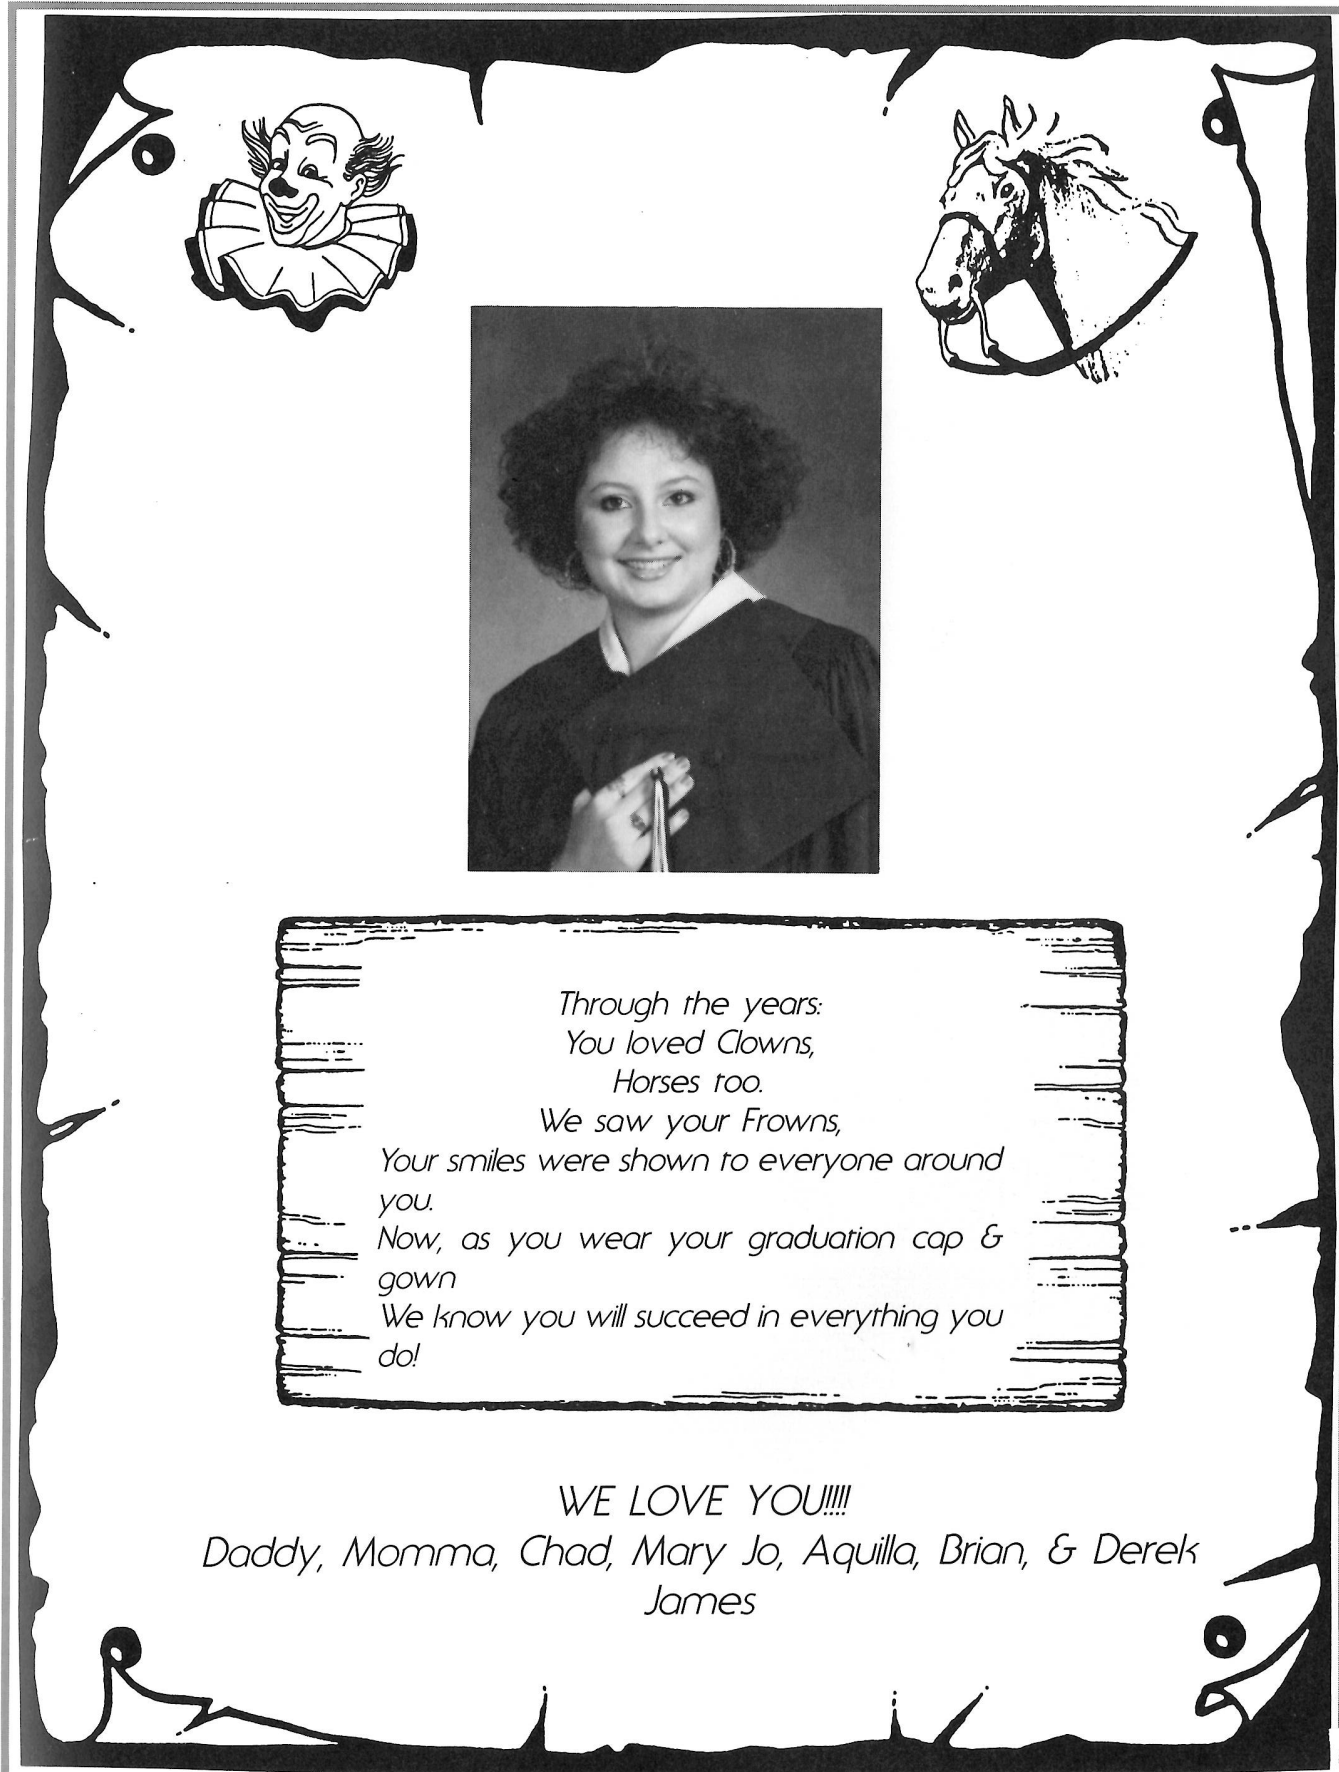 Through the years:
You loved Clowns,
Horses too.
We saw your Frowns,
Your smiles were shown to everyone around
you.
Now, as you wear your graduation cap &
gown
We know you will succeed in everything you
do!
WE LOVE YOU!!!!
Daddy, Momma, Chad, Mary Jo, Aquilla, Brian, & Derek
James